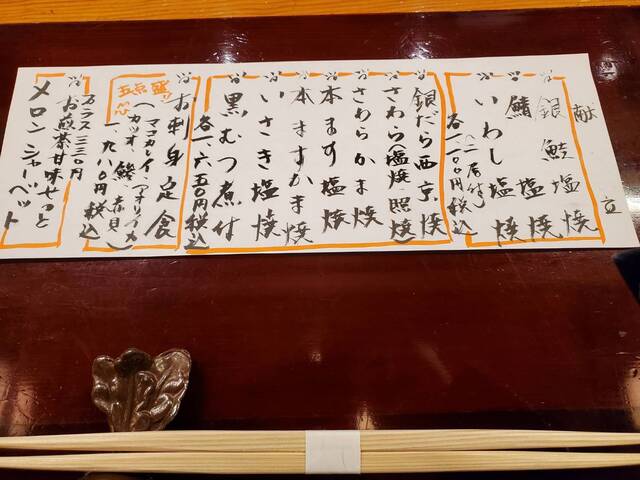 献立
銀鮭塩焼
鯖塩焼
いわし塩焼
(二尾付)
各一、一〇〇円税込
銀だら西京焼
さわら(塩焼・照焼)
さわらかま焼
本ます塩焼
本ますかま焼
いさき塩焼
黒むつ煮付
各一、六五〇円税込
お刺身定食
五点盛り
(マコカレイ、アオリイカ
カツオ、鯵、赤貝)
一、九八〇円税込
プラス三三〇円
お煎茶甘味せっと
メロンシャーベット